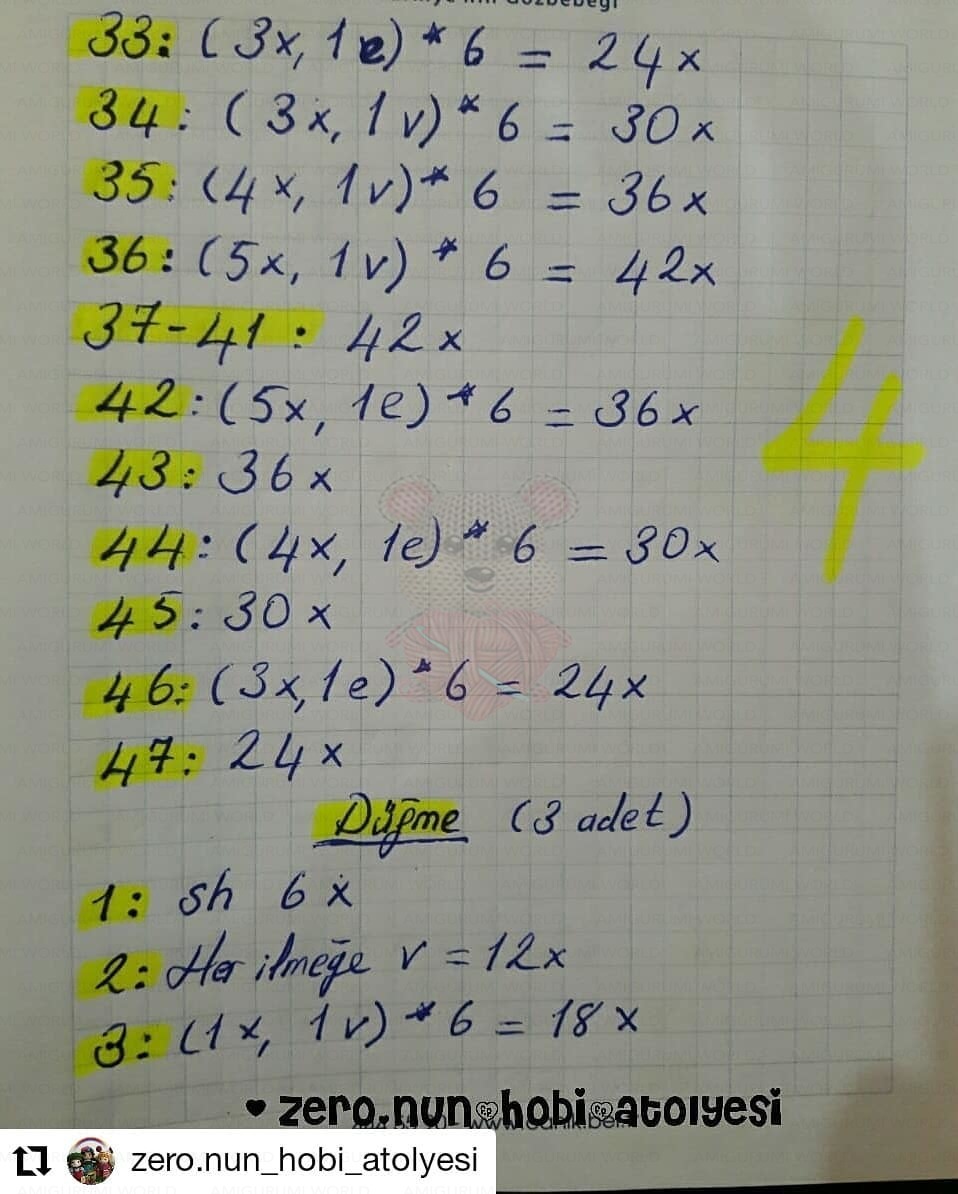 33: (3x, 1e) * 6 = 24x
34: (3x, 1v) * 6 = 30x
35: (4x, 1v) * 6 = 36x
36: (5x, 1v) * 6 = 42x
37-41: 42x
42: (5x, 1e) * 6 = 36x
4
43: 36x
44: (4x, 1e) * 6 = 30x
45: 30x
46: (3x, 1e) * 6 = 24x
47: 24x
Düğme (3 adet)
1: sh 6x
2: Her ilmeğe v = 12x
3: (1x, 1v) * 6 = 18x
♥ zero.nun hobi atolyesi
zero.nun_hobi_atolyesi